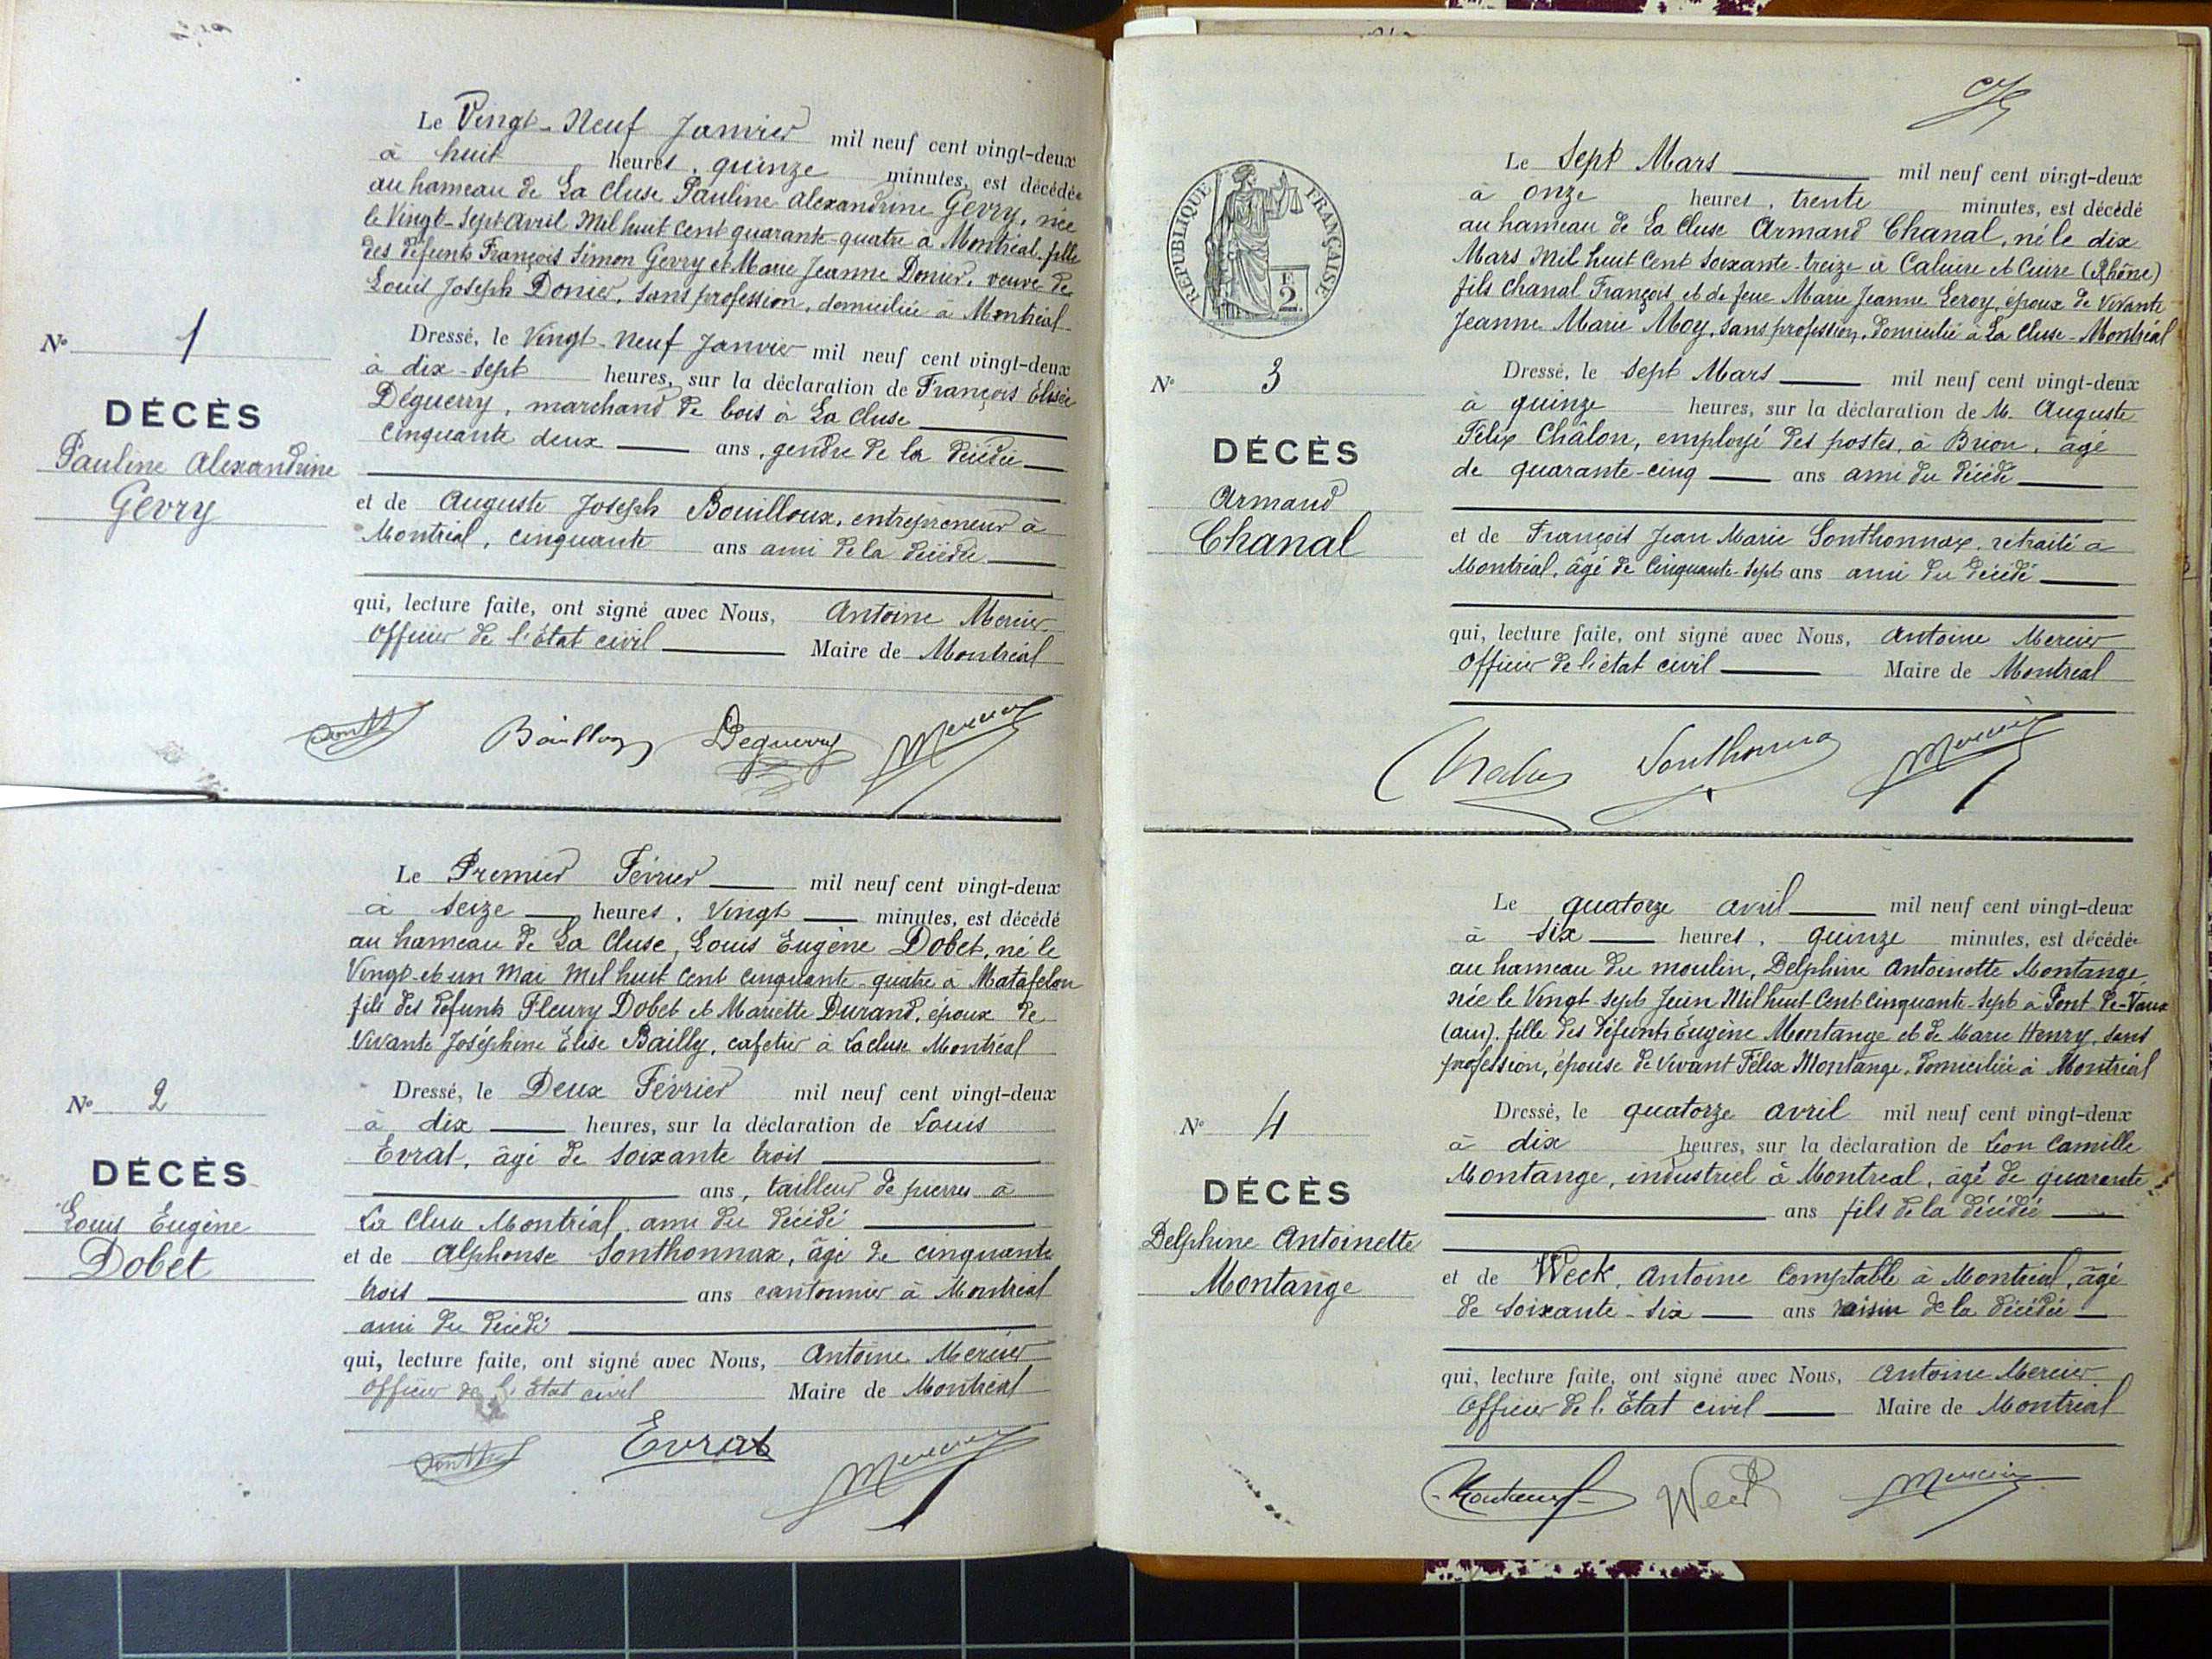 Le Vingt-Neuf Janvier mil neuf cent vingt-deux
à huit heures, quinze minutes, est décédée
au hameau de La Cluse Pauline Alexandrine Gevry, née
le Vingt-Sept Avril Mil huit cent quarante-quatre à Montréal, fille
des défunts François Simon Gevry et Marie Jeanne Donier, veuve de
Louis Joseph Donier, sans profession, domiciliée à Montréal
Dressé, le Vingt-Neuf Janvier mil neuf cent vingt-deux
à dix-sept heures, sur la déclaration de François Élisée
Déguerry, marchand de bois à La Cluse
cinquante deux ans, gendre de la décédée
et de Auguste Joseph Bouilloux, entrepreneur à
Montréal, cinquante ans ami de la décédée
qui, lecture faite, ont signé avec Nous, Antoine Mercier
Officier de l'État civil Maire de Montréal
Nº 1
DÉCÈS
Pauline Alexandrine
Gevry
Bouilloux Deguerry Mercier
Le Premier Février mil neuf cent vingt-deux
à seize heures, vingt minutes, est décédé
au hameau de La Cluse, Louis Eugène Dobet, né le
Vingt-et-un Mai Mil huit cent cinquante-quatre à Matafelon
fils des défunts Fleury Dobet et Mariette Durand, époux de
Vivante Joséphine Elise Bailly, cafetier à Lacluse Montréal
Dressé, le Deux Février mil neuf cent vingt-deux
à dix heures, sur la déclaration de Louis
Evrat, âgé de soixante trois
ans, tailleur de pierres à
La Cluse Montréal, ami du décédé
et de Alphonse Sonthonnax, âgé de cinquante
trois ans cantonnier à Montréal
ami du décédé
qui, lecture faite, ont signé avec Nous, Antoine Mercier
Officier de l'État civil Maire de Montréal
Nº 2
DÉCÈS
Louis Eugène
Dobet
Evrat Mercier
RÉPUBLIQUE FRANÇAISE
2
Le Sept Mars mil neuf cent vingt-deux
à onze heures, trente minutes, est décédé
au hameau de La Cluse Armand Chanal, né le dix
Mars Mil huit Cent Soixante-treize à Caluire et Cuire (Rhône)
fils Chanal François et de feue Marie Jeanne Leroy, époux de Vivante
Jeanne Marie Moy, sans profession, domicilié à La Cluse-Montréal
Dressé, le Sept Mars mil neuf cent vingt-deux
à quinze heures, sur la déclaration de M. Auguste
Félix Châlon, employé des postes, à Brion, âgé
de quarante-cinq ans ami du décédé
et de François Jean Marie Sonthonnax, retraité à
Montréal, âgé de Cinquante-Sept ans ami du décédé
qui, lecture faite, ont signé avec Nous, Antoine Mercier
Officier de l'état civil Maire de Montréal
Nº 3
DÉCÈS
Armand
Chanal
Sonthonnax Mercier
Le quatorze avril mil neuf cent vingt-deux
à six heures, quinze minutes, est décédée
au hameau du moulin, Delphine Antoinette Montange
née le Vingt-Sept Juin Mil huit Cent Cinquante-Sept à Pont-de-Vaux
(ain). fille des défunts Eugène Montange et de Marie Henry, sans
profession, épouse de Vivant Félix Montange, domiciliée à Montréal
Dressé, le quatorze avril mil neuf cent vingt-deux
à dix heures, sur la déclaration de Léon Camille
Montange, industriel à Montreal, âgé de quarante
ans fils de la décédée
et de Weck, Antoine Comptable à Montréal, âgé
de soixante-six ans voisin de la décédée
qui, lecture faite, ont signé avec Nous, Antoine Mercier
Officier de l'État civil Maire de Montréal
Nº 4
DÉCÈS
Delphine Antoinette
Montange
Montange Weck Mercier